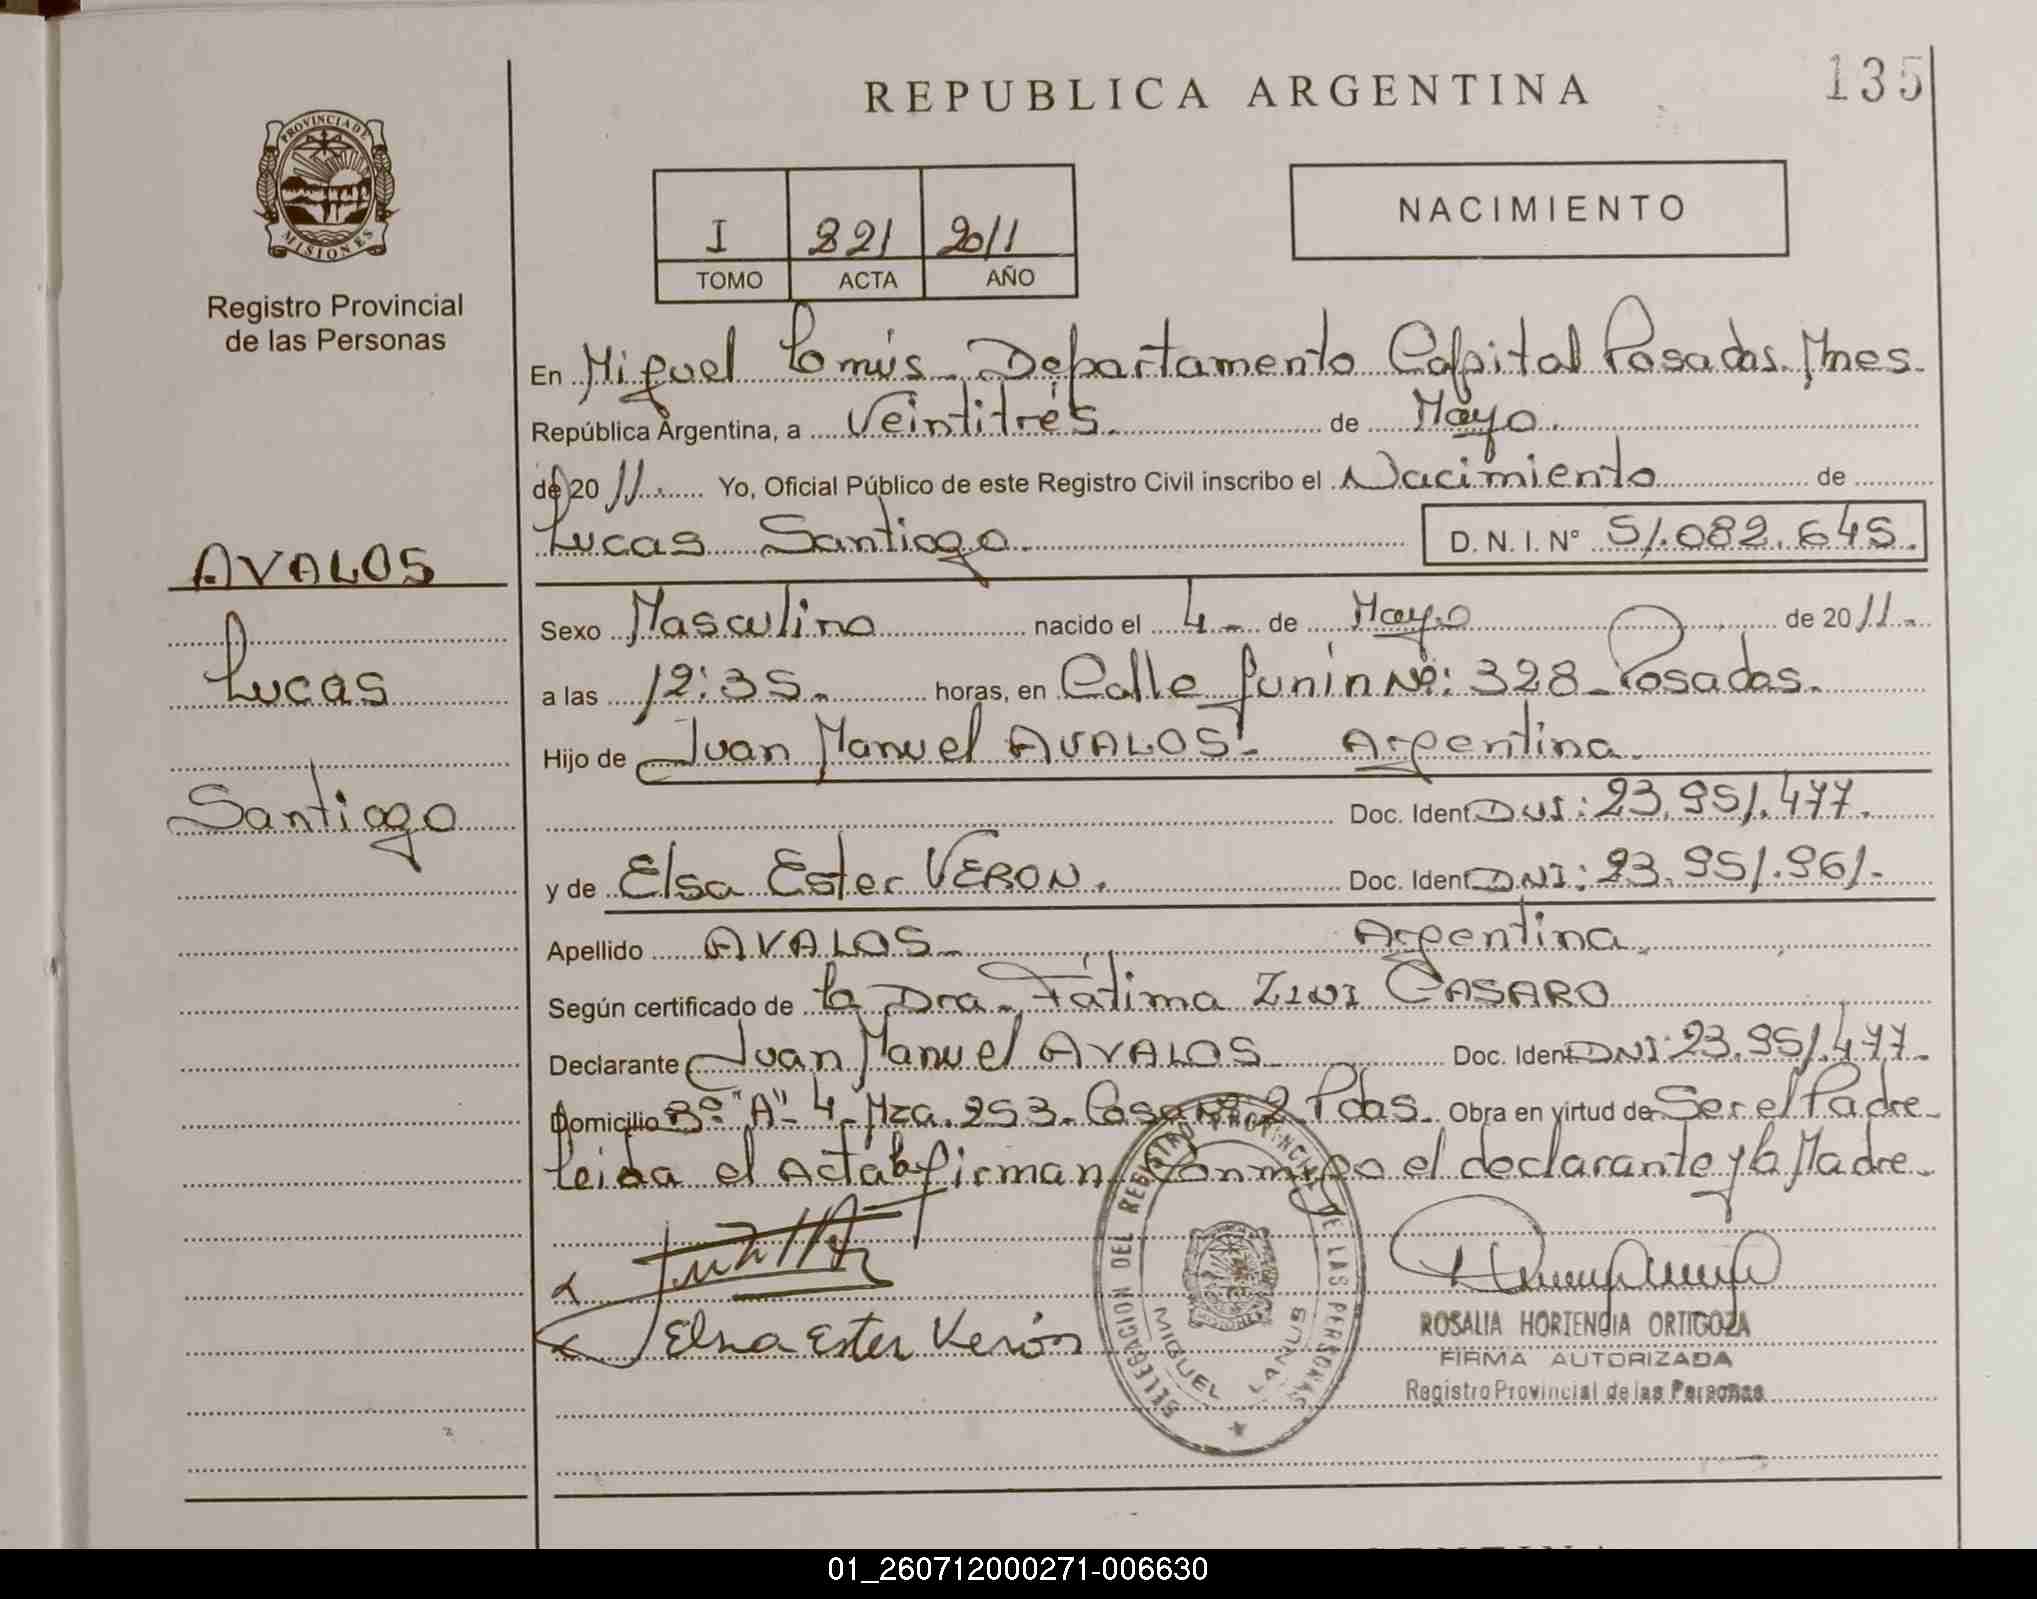 REPUBLICA ARGENTINA
135
PROVINCIA DE
MISIONES
Registro Provincial
de las Personas
I 821 2011
TOMO ACTA AÑO
NACIMIENTO
En Miguel Lanús Departamento Capital Posadas Mnes.
República Argentina, a Veintitrés. de Mayo.
de 20 11. Yo, Oficial Público de este Registro Civil inscribo el Nacimiento de
Lucas Santiago
D. N. I. N° 51.082.645.
AVALOS
Lucas
Santiago
Sexo Masculino nacido el 4 de Mayo de 20 11.
a las 12:35. horas, en Calle Junín Nº: 328 Posadas.
Hijo de Juan Manuel AVALOS. Argentina.
Doc. Ident. DNI: 23.951.477.
y de Elsa Ester VERON. Doc. Ident. DNI: 23.951.961.
Apellido AVALOS Argentina.
Según certificado de la Dra. Fátima ZINI CASARO
Declarante Juan Manuel AVALOS Doc. Ident. DNI: 23.951.477.
Domicilio Bº "A"- 4 Mza. 253. Casa nº 2 Pdas. Obra en virtud de Ser el Padre
Leida el Acta la firman Conmigo el declarante y la Madre.
Elsa Ester Verón
DELEGACION DEL REGISTRO PROVINCIAL DE LAS PERSONAS
MIGUEL LANUS
ROSALIA HORTENCIA ORTIGOZA
FIRMA AUTORIZADA
Registro Provincial de las Personas
01_260712000271-006630